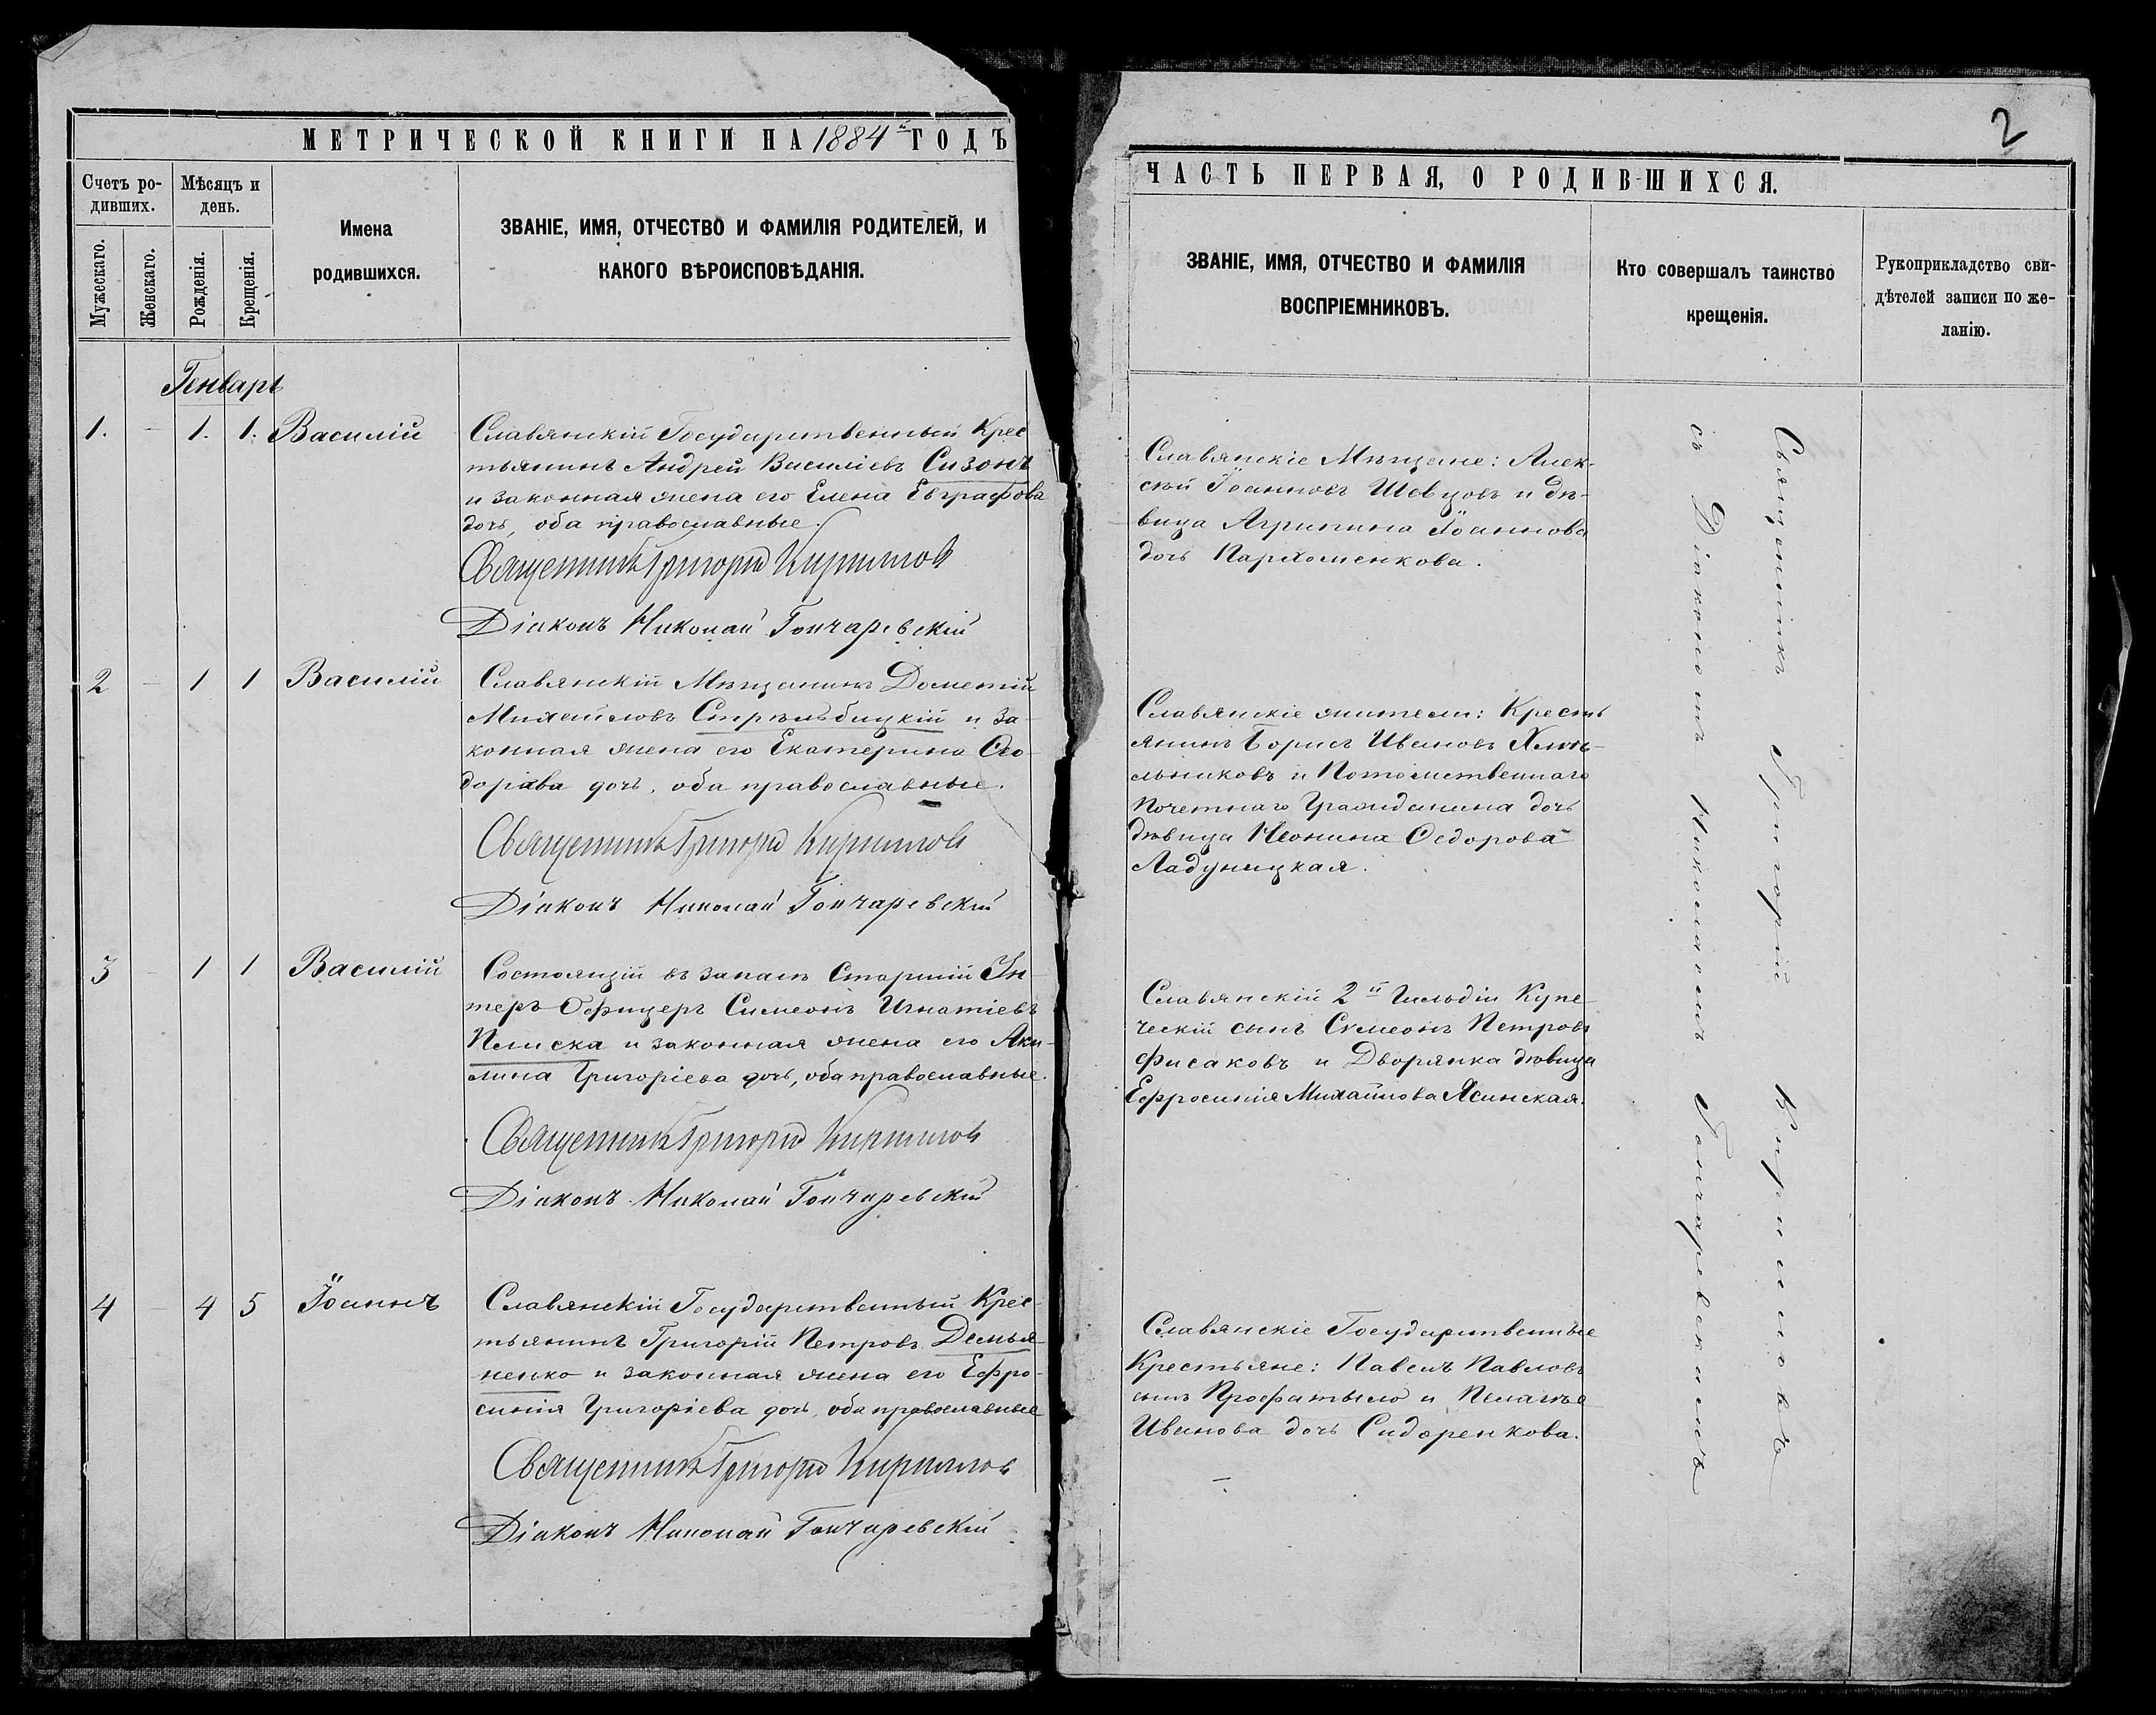 МЕТРИЧЕСКОЙ КНИГИ НА 1884й ГОДЪ
Счетъ ро-
дивших.
Мѣсяцъ и
день.
Мужескаго.
Женскаго.
Рожденія.
Крещенія.
Имена
родившихся.
ЗВАНІЕ, ИМЯ, ОТЧЕСТВО И ФАМИЛІЯ РОДИТЕЛЕЙ, И
КАКОГО ВѢРОИСПОВѢДАНІЯ.
Генварь
1. - 1. 1. Василій
Славянскій Государственный Крес
тьянинъ Андрей Василіевъ Сизонъ
и законная жена его Елена Евграфова
дочь, оба православные.
Священникъ Григорій Кириллов
Діаконъ Николай Гончаревскій
2 - 1 1 Василій
Славянскій Мѣщанинъ Дометій
Михайловъ Стрѣльбицкій и за-
конная жена его Екатерина Ѳео-
дорова дочь, оба православные.
Священникъ Григорій Кириллов
Діаконъ Николай Гончаревскій
3 - 1 1 Василій
Состоящій въ запасѣ Старшій Ун-
теръ-Офицеръ Симеонъ Игнатіевъ
и законная жена его Аки-
лина Григоріева дочь, оба православные.
Священникъ Григорій Кириллов
Діаконъ Николай Гончаревскій
4 - 4 5 Іоаннъ
Славянскій Государственный Крес-
тьянинъ Григорій Петровъ Демья-
ненко и законная жена его Ефро-
синія Григоріева дочь, оба православные
Священникъ Григорій Кириллов
Діаконъ Николай Гончаревскій
2
ЧАСТЬ ПЕРВАЯ, О РОДИВШИХСЯ.
ЗВАНІЕ, ИМЯ, ОТЧЕСТВО И ФАМИЛІЯ
ВОСПРІЕМНИКОВЪ.
Кто совершалъ таинство
крещенія.
Рукоприкладство сви-
дѣтелей записи по же-
ланію.
Славянскіе Мѣщане: Алек-
сѣй Іоанновъ Шевцовъ и дѣ-
вица Агрипина Іоаннова
дочь Пархоменкова.
Славянскіе жители: Кресть
янинъ Борисъ Ивановъ
и Потомственнаго
Почетнаго Гражданина дочь
дѣвица Неонина Ѳедорова
Ладуницкая.
Славянскій 2й Гильдіи Купе-
ческій сынъ Симеонъ Петровъ
Фисаковъ и Дворянка дѣвица
Ефросинія Михайлова Ясинская.
Славянскіе Государственные
Крестьяне: Павелъ Павловъ
сынъ и
Иванова дочь Сидоренкова.
Священникъ Григорій Кирилловъ
съ Діакономъ Николаемъ Гончаревскимъ